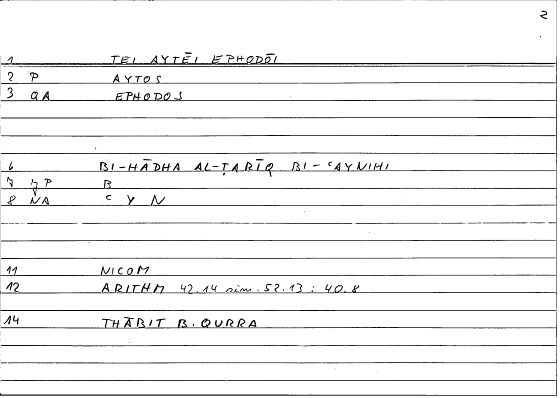 2
1 TEI AYTĒI EPHODŌI
2 P AYTOS
3 QA EPHODOS
6 BI-HĀDHA AL-ṬARĪQ BI-ᶜAYNIHI
7 P B
8 NA ᶜYN
11 NICOM
12 ARITHM 42.14 sim. 52.13 : 40.8
14 THĀBIT B. QURRA